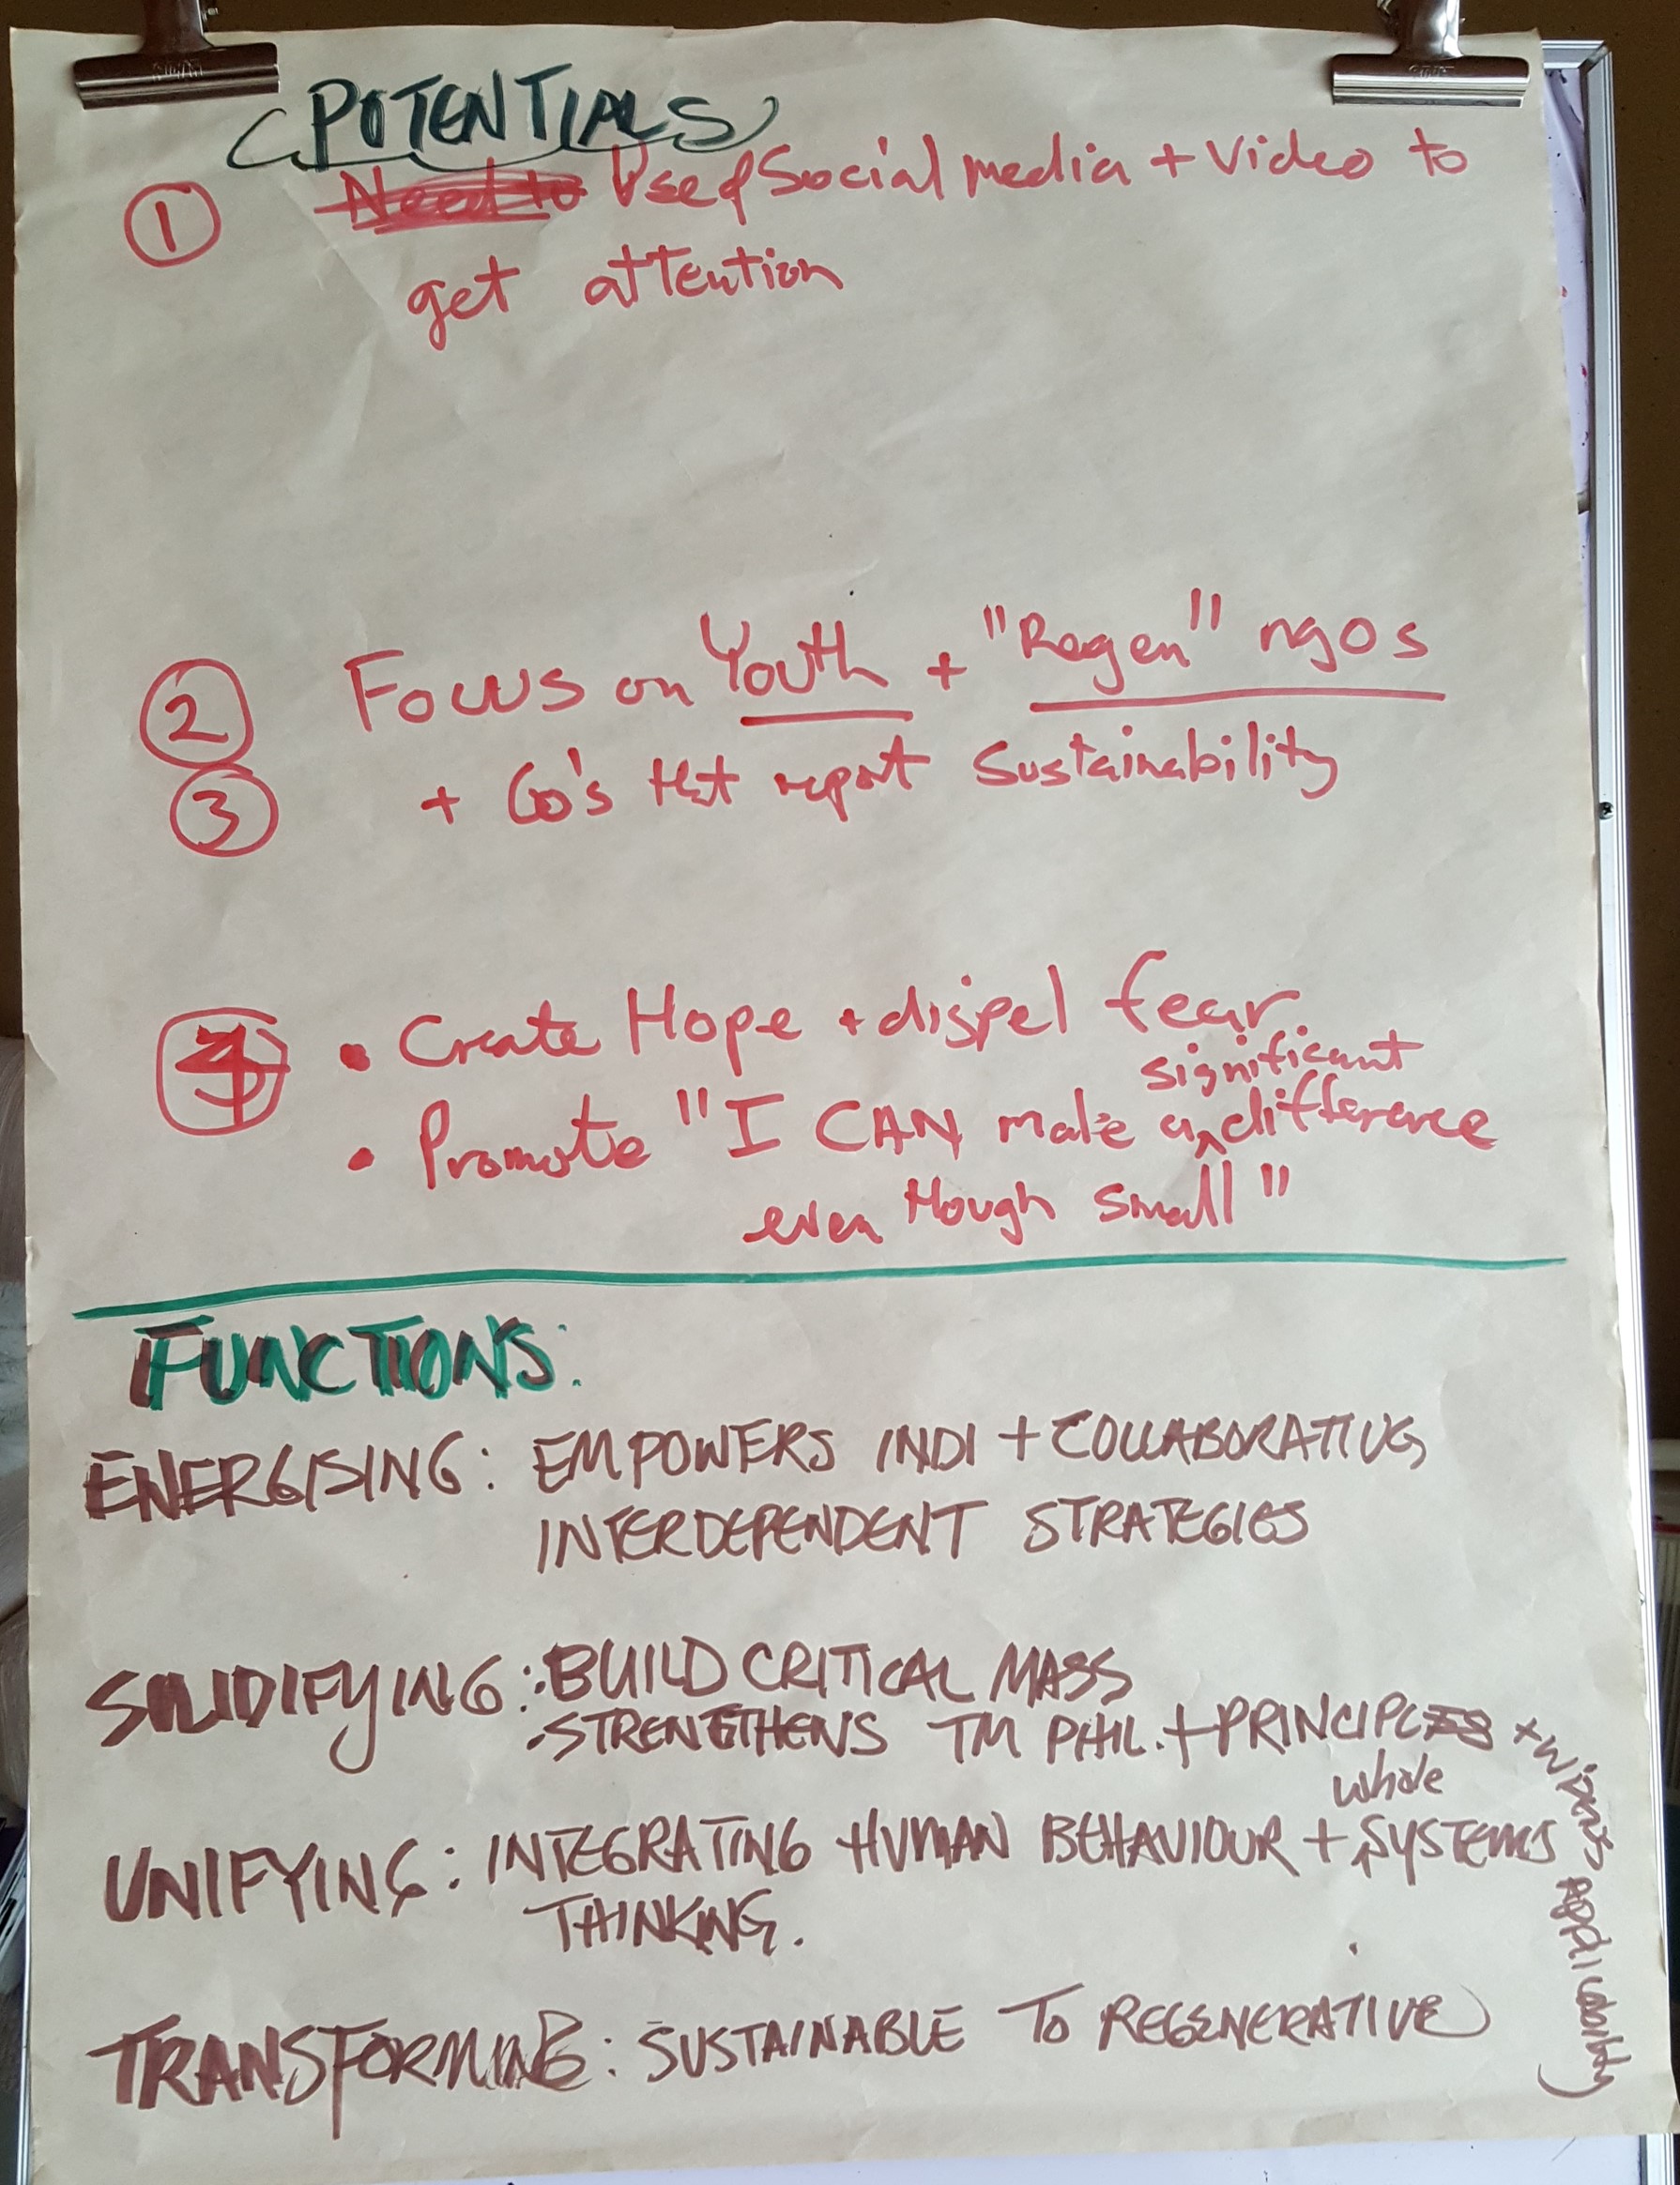 POTENTIALS
① Need to Use of Social media + Video to
get attention
② Focus on Youth + "Regen" ngos
③ + Co's that report Sustainability
④ • Create Hope + dispel fear
significant
• Promote "I CAN make a difference
even though small"
FUNCTIONS:
ENERGISING: EMPOWERS INDI + COLLABORATIVE,
INTERDEPENDENT STRATEGIES
SOLIDIFYING: • BUILD CRITICAL MASS
• STRENGTHENS TM PHIL. + PRINCIPLES +
applicability
whole
UNIFYING: INTEGRATING HUMAN BEHAVIOUR + SYSTEMS
THINKING.
TRANSFORMING: SUSTAINABLE TO REGENERATIVE